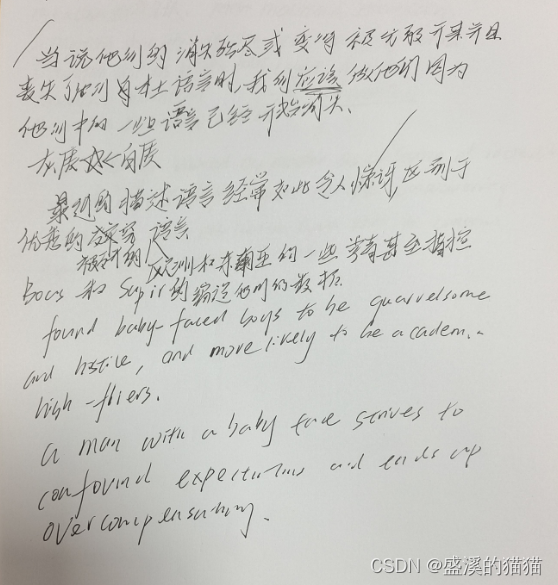 当说他们的消失殆尽或变得被分散开来并且
丧失了他们自本土语言时,我们应该做他们因为
他们中的一些语言已经开始消失、
灰度 白度
最近的描述语言经常如此令人惊讶区别于
优悉的 语言
欧洲和东南亚的一些学者甚至指控
Boas 和 Sapir 的编造他们的数据.
found baby-faced boys to be quarrelsome
and hostile, and more likely to be academ..
high-fliers.
a man with a baby face strives to
confound expectations and ends up
overcompensating.
CSDN @盛溪的猫猫